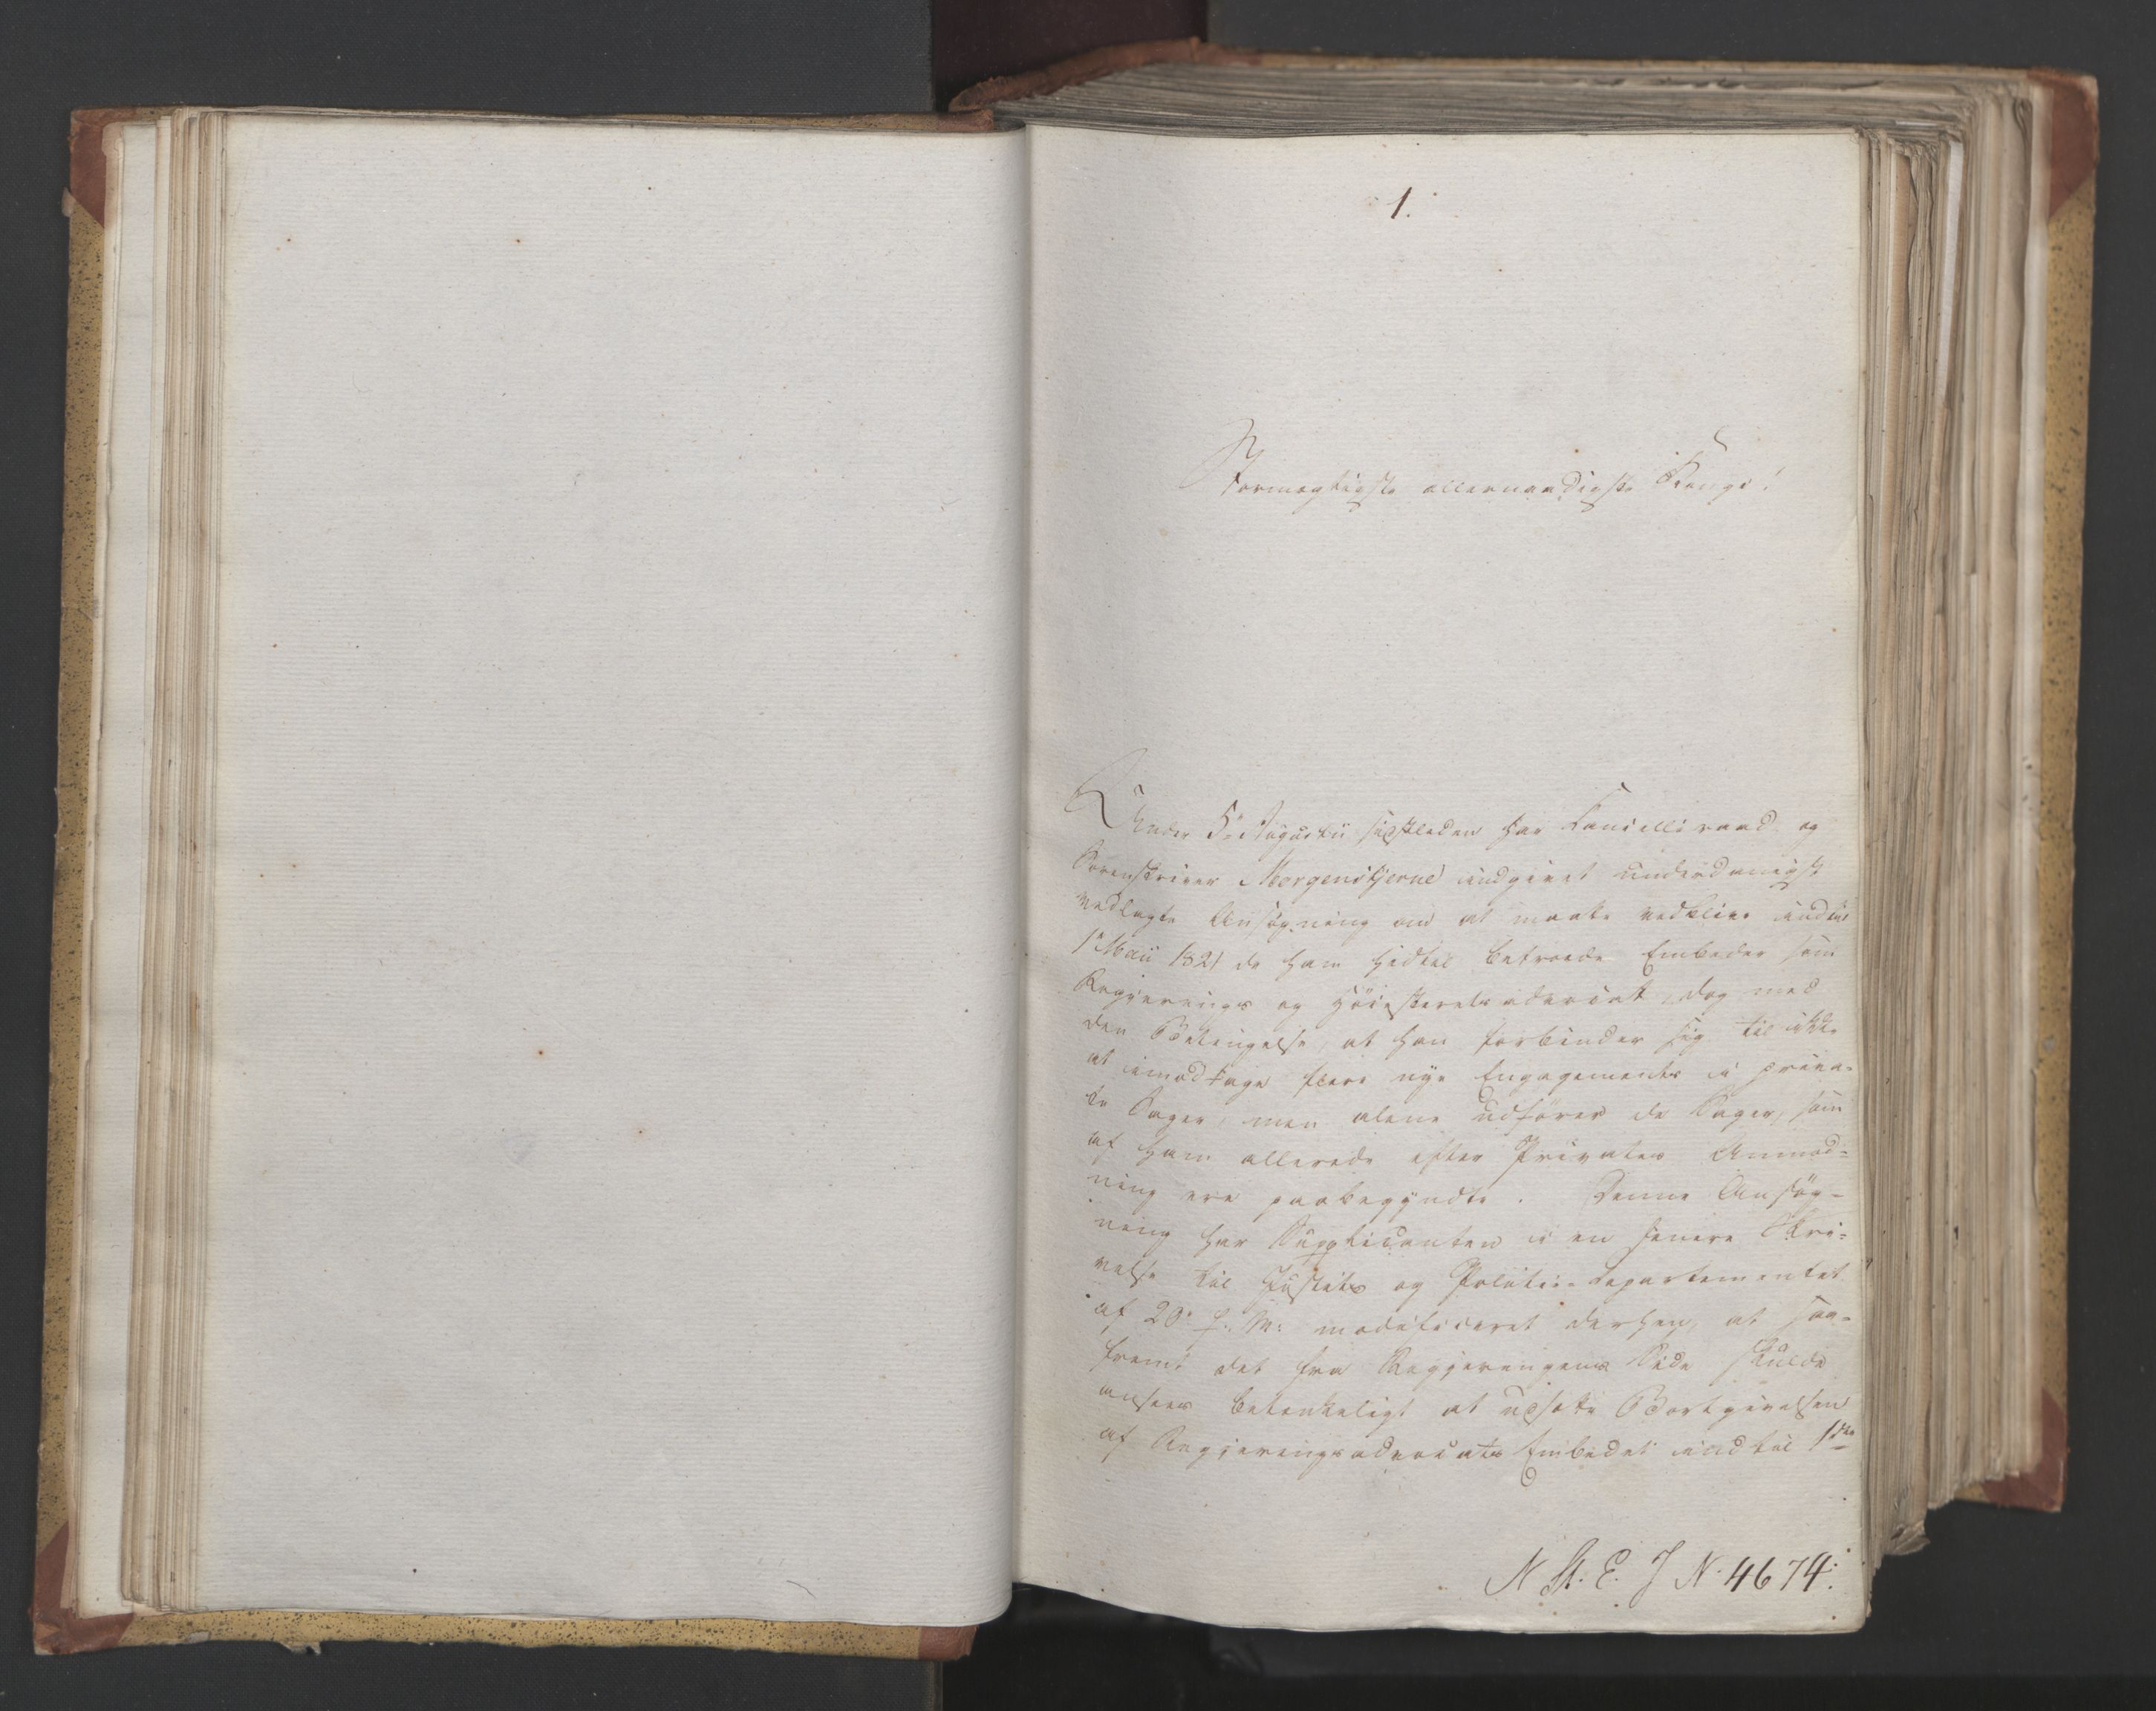 1.
Stormægtigste allernaadigste Konge!
Under 5te Augustii sidstleden har Cancelliraad og
Sorenskriver Morgenstjerne indgivet underdanigst
vedlagte Ansøgning om at maatte vedblive indtil
1ste Maii 1821 de ham hidtil betroede Embeder som
Regjerings og Høiesteretsadvocat, dog med
den Betingelse, at han forbinder sig til ikke
at imodtage flere nye Engagements i priva-
te Sager, men alene udfører de Sager, som
af ham allerede efter Privates Anmod-
ning ere paabegyndte. Denne Ansøg-
ning har Supplicanten i en senere Skri-
velse til Justits og Politie-Departementet
af 20. f. M. modificeret derhen, at saa-
fremt det fra Regjeringens Side skulde
ansees betænkeligt at udsætte Bortgivelsen
af Regjeringsadvocats Embedet indtil 1ste
N St. E. J N. 4674.